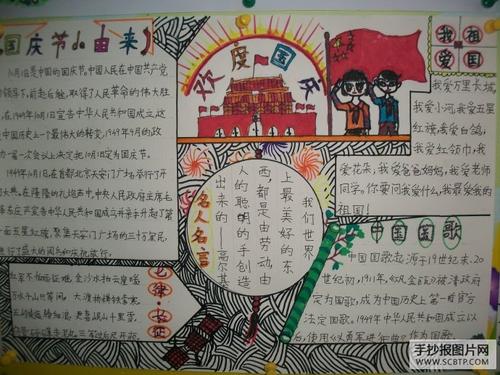 国庆节的由来
10月1日是中国的国庆节,中国人民在中国共产党
的领导下,前赴后继,取得了人民革命的伟大胜
在1949年10月1日宣告中华人民共和国成立,这
中国历史上一个最伟大的转变,1949年9月的政
第一次会议上决定把10月1日定为国庆节。
1949年10月1日,在首都北京天安门广场举行了开
大典,在隆隆的礼炮声中,中央人民政府主席毛
东庄严宣告中华人民共和国成立并亲手升起了第
一面五星红旗,聚集天安门广场的三十万军民,
行了盛大的阅兵和庆祝游行
欢度国庆
我爱祖国
我爱万里长城
我爱小河,我爱五星
红旗,我爱白鸽,
我爱红领巾,我
爱花朵,我爱爸爸妈妈,我爱老师
同学,你要问我爱什么,我最爱我的
祖国!
名人名言
我们世界
上最美好的东
西,都是由劳动,由
人的聪明的手创造
出来的——高尔基
七律·长征
红军不怕远征难,
万水千山只等闲,
金沙水拍云崖暖
大渡桥横铁索寒
更喜岷山千里雪
三军过后尽开颜
中国国歌
中国国歌起源于19世纪末,20
世纪初,1911年,
定为国歌,成为中国历史上第一首官方
法定国歌,1949年中华人民共和国成立以
后,使用《义勇军进行曲》作为国歌
手抄报图片网
WWW.SCBTP.COM